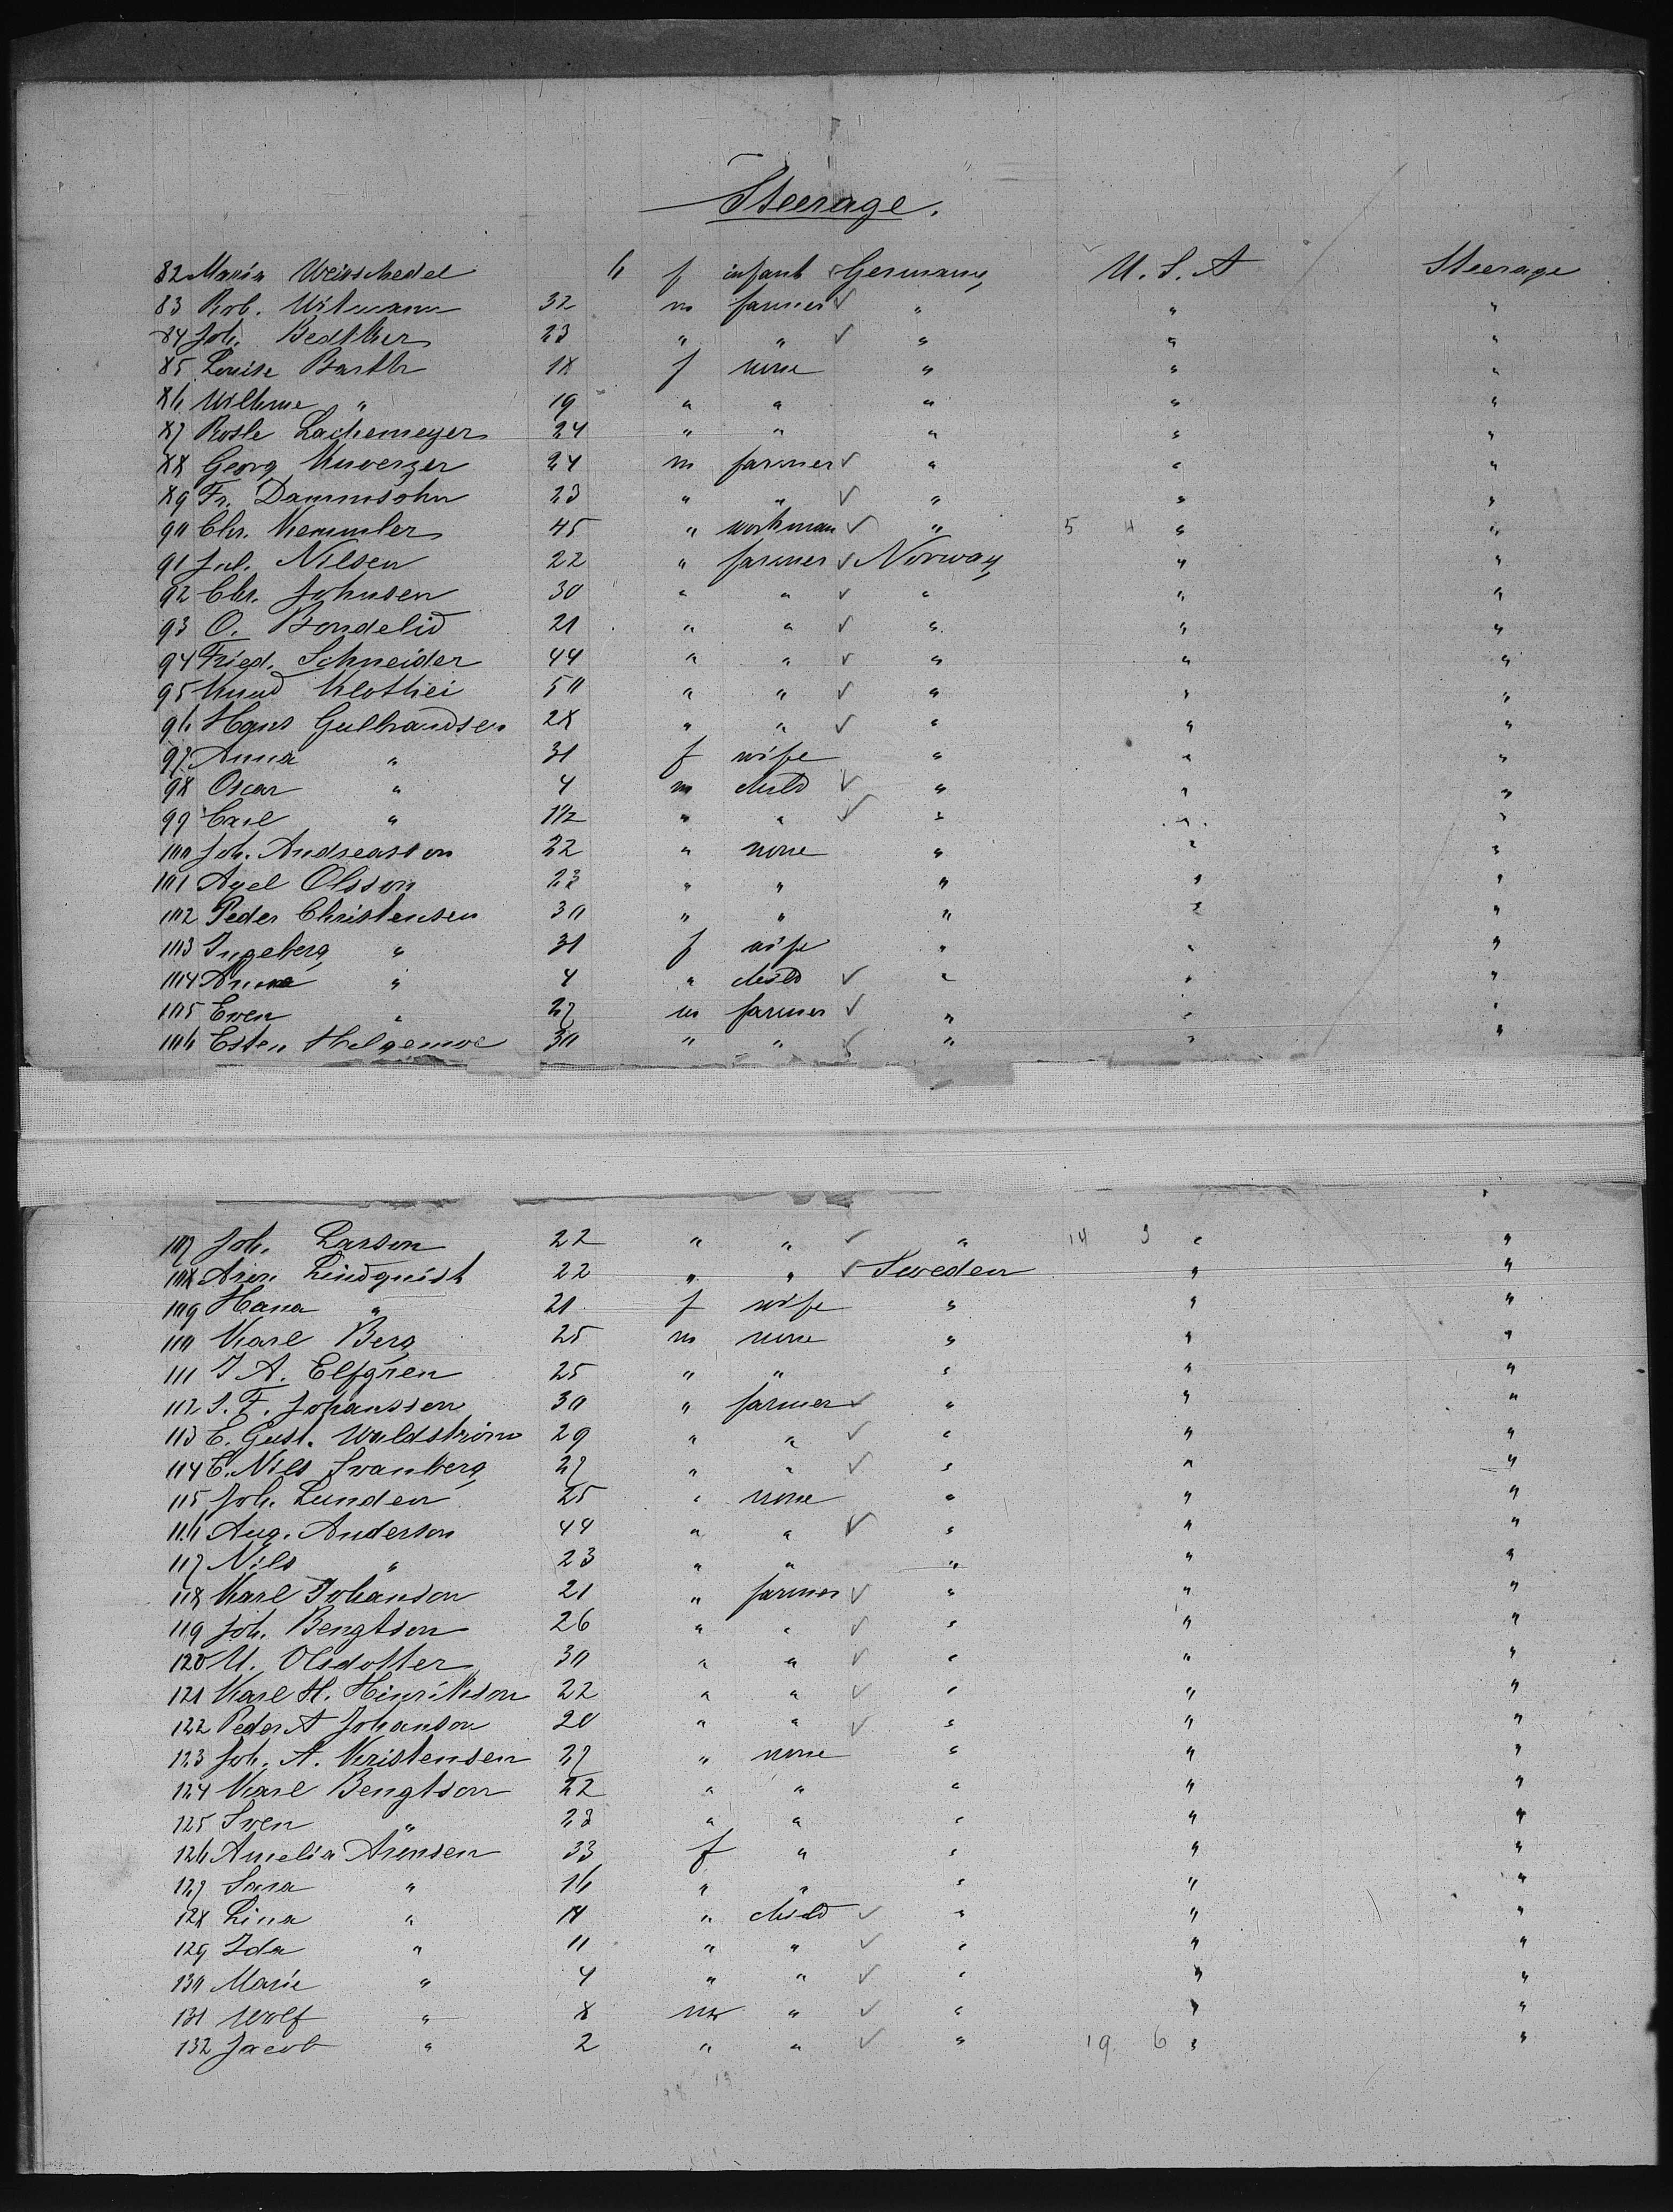 Steerage.
82 Maria Weisschedel 6 f infant ✓ Germany U.S.A Steerage
83 Rob. Witmann 32 m farmer ✓ " " "
84 Joh. 23 " " ✓ " " "
85 Louise Barth 18 f none " " "
86 Wilhme " 19 " " " " "
87 Rosle Lachemeyer 24 " " " " "
88 Georg 24 m farmer ✓ " " "
89 Fr. Dammsohn 23 " " ✓ " " "
90 Chr. Kemmler 45 " workman ✓ " 5 4 " "
91 Jul. Nilsen 22 " farmer ✓ Norway " "
92 Chr. Johnsen 30 " " ✓ " " "
93 O. Bondelid 21 " " ✓ " " "
94 Fried. Schneider 44 " " ✓ " " "
95 Knud Klothei 50 " " ✓ " " "
96 Hans Gulbrandsen 28 " " ✓ " " "
97 Anna " 31 f wife " " "
98 Oscar " 4 m child ✓ " " "
99 Carl " 1½ " " ✓ " " "
100 Joh. Andreasson 22 " none " " "
101 Axel Olsson 23 " " " " "
102 Peder Christensen 30 " " " " "
103 Ingeberg " 31 f wife " " "
104 Anna " 4 " child ✓ " " "
105 Even " 27 m farmer ✓ " " "
106 Esten Helgemoe 30 " " ✓ " " "
107 Joh. Larson 22 " " ✓ " 14 3 " "
108 Lindquist 22 " " ✓ Sweden " "
109 Hana " 21 f wife " " "
110 Karl Berg 25 m none " " "
111 J A. Elfgren 25 " " " " "
112 S. F. Johansson 30 " farmer ✓ " " "
113 C. Gust. Waldström 29 " " ✓ " " "
114 C. Nils Swanberg 27 " " ✓ " " "
115 Joh. Lunden 25 " none " " "
116 Aug. Anderson 44 " " ✓ " " "
117 Nils " 23 " " " " "
118 Karl Johanson 21 " farmer ✓ " " "
119 Joh. Bengtson 26 " " ✓ " " "
120 M. Olsdotter 30 " " ✓ " " "
121 Karl H. Hinrikson 22 " " ✓ " " "
122 Peder A Johanson 20 " " ✓ " " "
123 Joh. A. Kristensen 27 " none " " "
124 Karl Bengtson 22 " " " " "
125 Sven " 23 " " " " "
126 Amelia Arensen 33 f " " " "
127 Sara " 16 " " " " "
128 Lina " " child ✓ " " "
129 Ida " 11 " " ✓ " " "
130 Marie " 4 " " ✓ " " "
131 Wolf " 8 m " ✓ " " "
132 Jacob " 2 " " ✓ " 19 6 " "